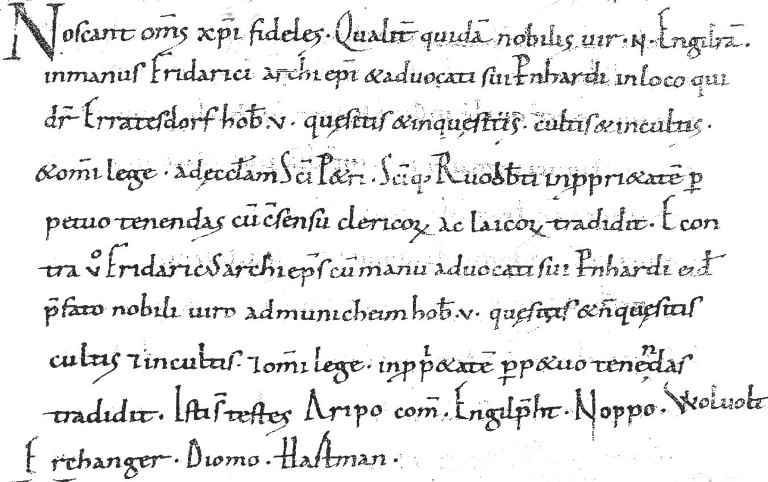 Noscant om̄s xp̄i fideles. Qualit̄ quidā nobilis uir. N. Engilrā.
inmanus Fridarici archiep̄i &advocati sui P̄nhardi inloco qui
dr̄ Erratesdorf hob̄.v. quęsitis &inquęsitis. cultis &incultis.
&om̄i lege. adęccl̄am Sc̄i P&ri. Sc̄iq; Ruodb̄ti inp̱pri&atē p̱
petuo tenendas cū c̄sensu clericoꝝ ac laicoꝝ tradidit. Econ
tra v̊ Fridaricus archiep̄s cū manu advocati sui P̄nhardi eid̄
p̄fato nobili uiro admunicheim hob̄.v. quęsitis &n̄quęsitis
cultis ⁊incultis. ⁊om̄i lege. inp̱pri&atē p̱p&uo tenendas
tradidit. Isti s̄ testes Aripo com̄. Engilp̄ht. Noppo. Wolvolt
Erchanger. Diomo. Hartman.